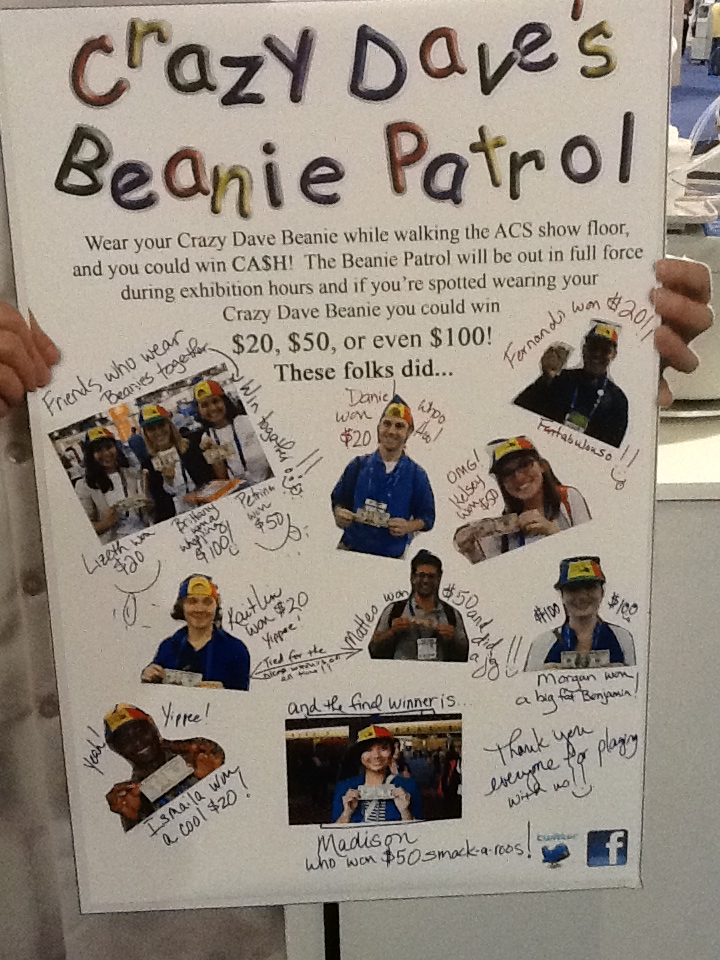 Crazy Dave's
Beanie Patrol
Wear your Crazy Dave Beanie while walking the ACS show floor,
and you could win CA$H! The Beanie Patrol will be out in full force
during exhibition hours and if you're spotted wearing your
Crazy Dave Beanie you could win
$20, $50, or even $100!
These folks did...
Friends who wear
Beanies together
Win together!!!
Lizeth won
$20
Brittany
won a
whopping
$100!
Petrina
won
$50!
Daniel
won
$20
Whoo
hoo!
Fernando won $20!!
Fantabuloso!!
OMG!
Kelsey
won $50
Kaitlin
won $20
Yippee!
Tied for the
Matteo won
$50 and did
a jig!!
$100
$100
Morgan won
a big fat Benjamin!
Yeah!
Yippee!
Ismaila won
a cool $20!
and the final winner is...
Madison
who won $50 smack-a-roos!
Thank you
everyone for playing
with us!!
twitter
f